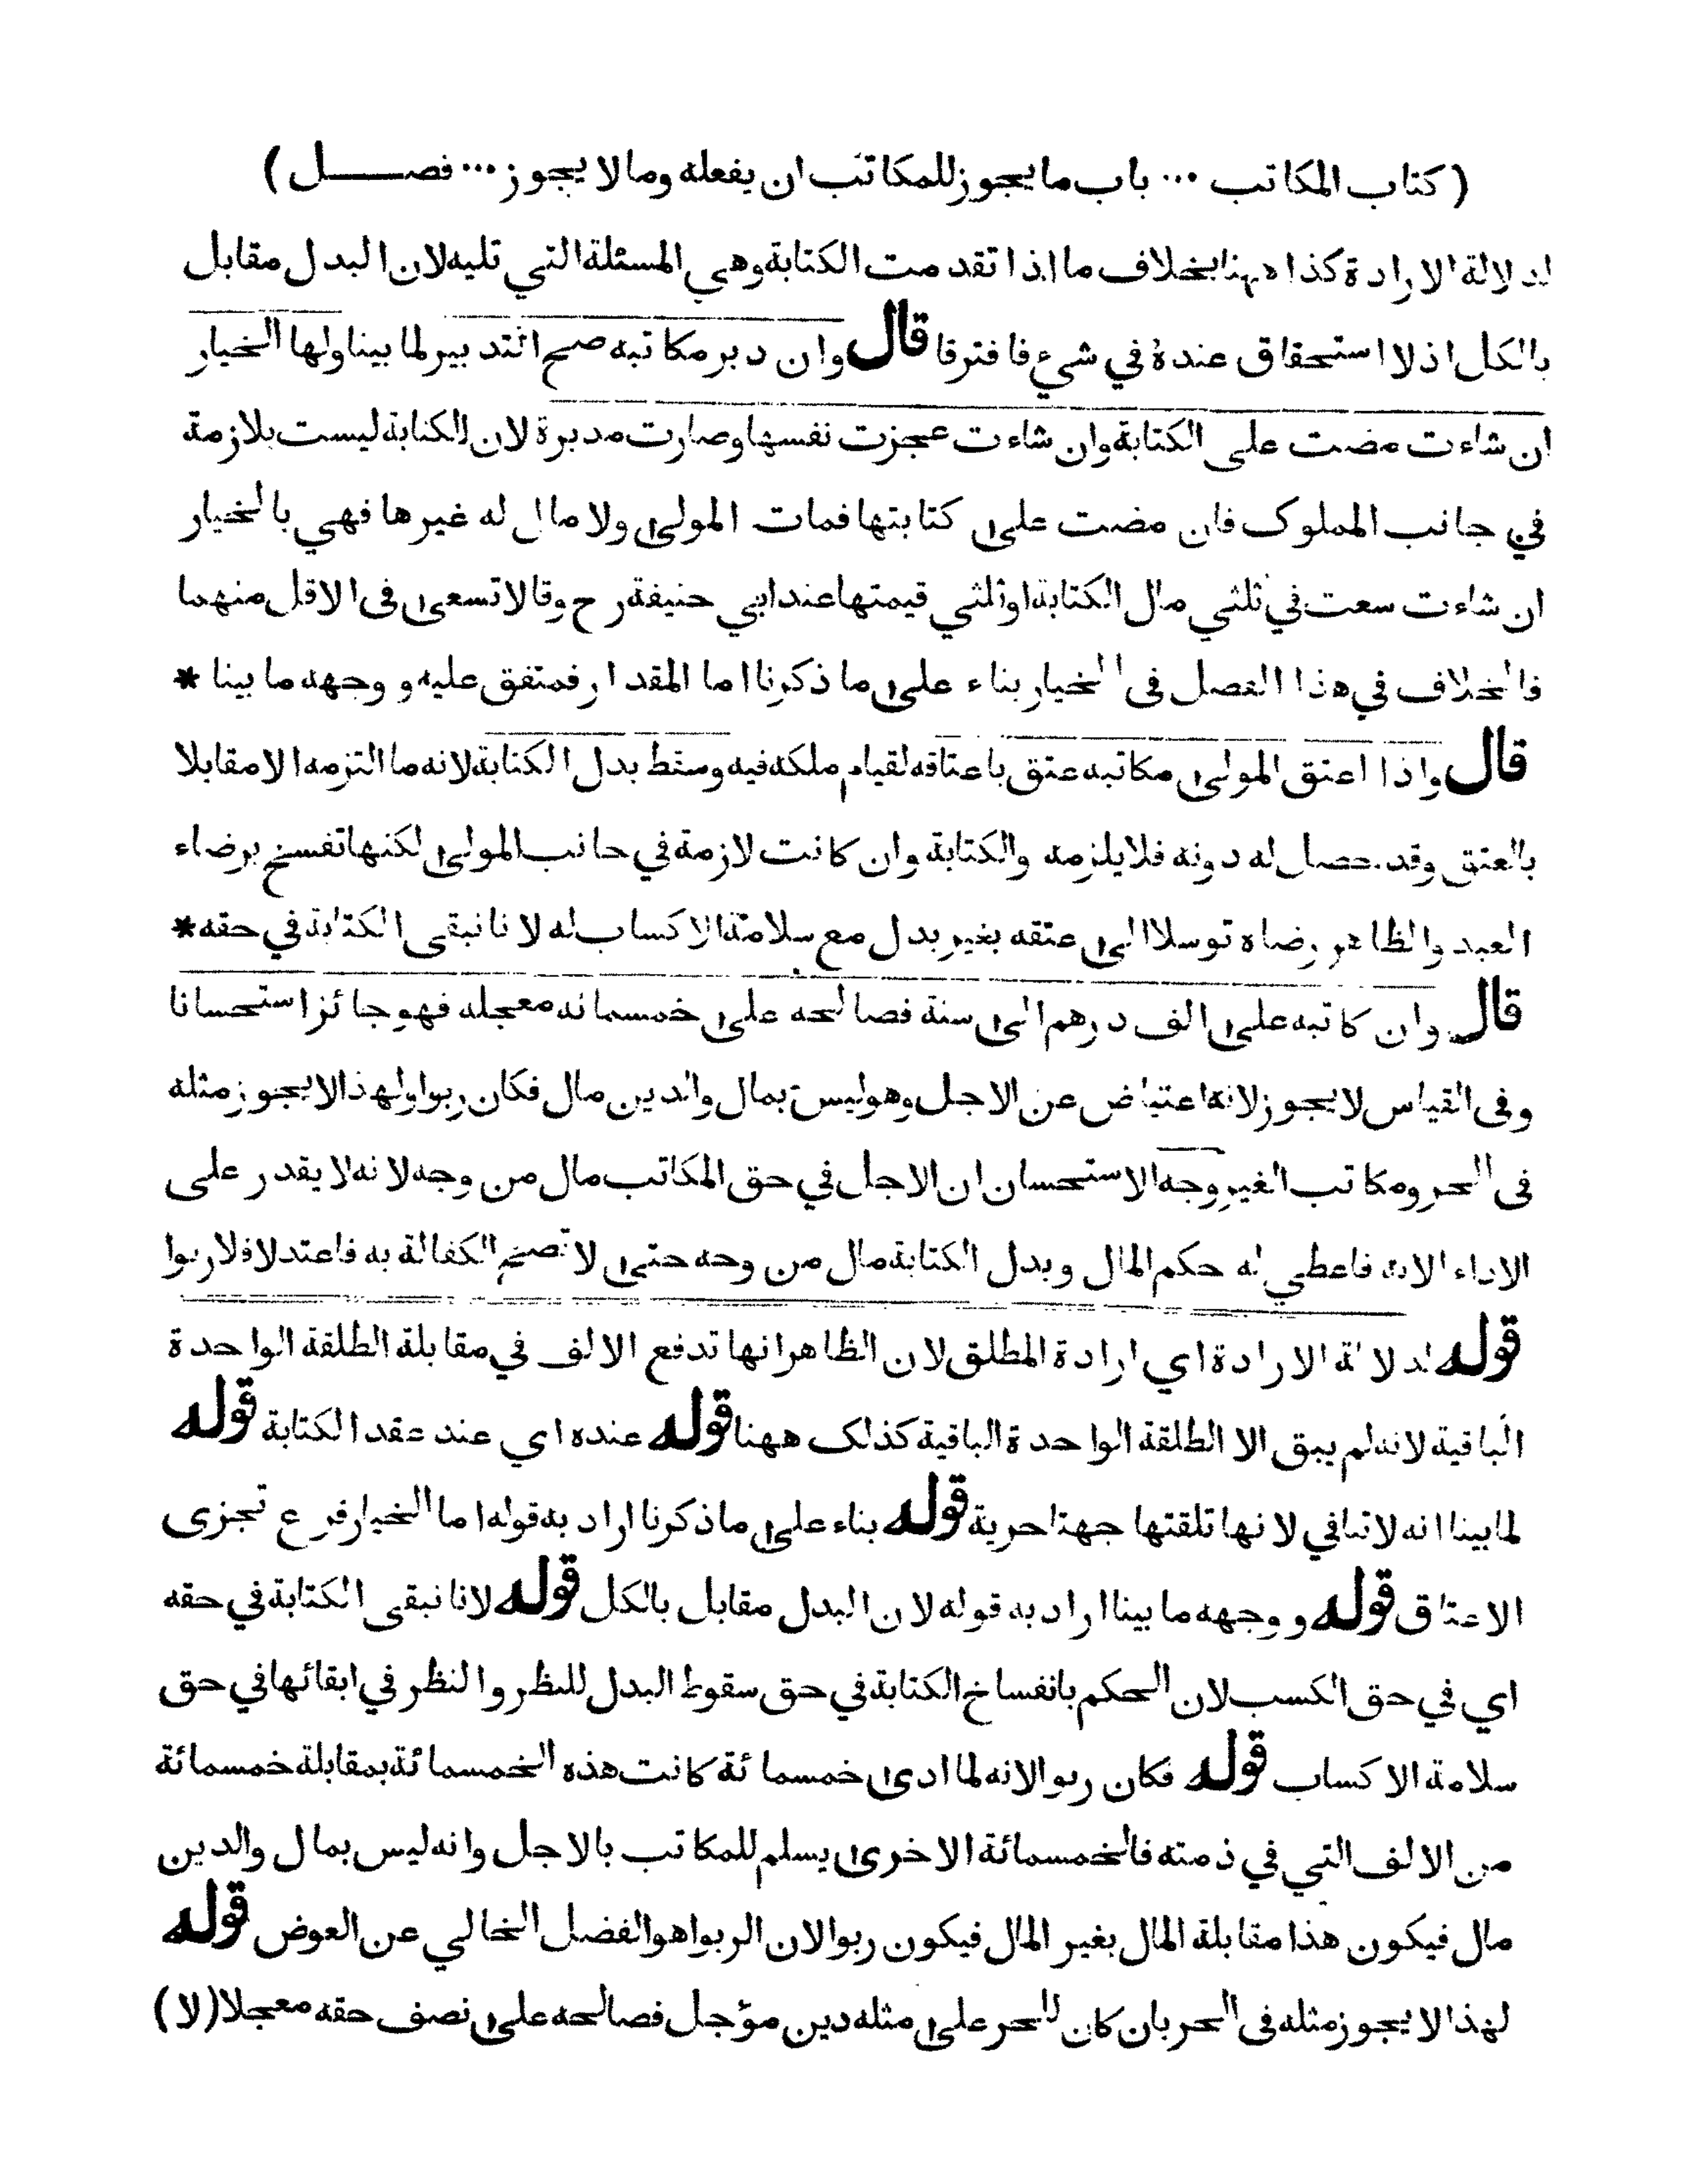 ( كتاب المكاتب ... باب ما يجوز للمكاتب ان يفعله وما لا يجوز ... فصــــل )
لدلالة الارادة كذا ههنا بخلاف ما اذا تقدمت الكتابة وهي المسئلة التي تليه لان البدل مقابل
بالكل اذ لا استحقاق عنده في شيء فافترقا قال وان دبر مكاتبه صح التدبير لما بينا ولها الخيار
ان شاءت مضت على الكتابة وان شاءت عجزت نفسها وصارت مدبرة لان الكتابة ليست بلازمة
في جانب المملوك فان مضت على كتابتها فمات المولى ولا مال له غيرها فهي بالخيار
ان شاءت سعت في ثلثي مال الكتابة او ثلثي قيمتها عند ابي حنيفة رح وقالا تسعى في الاقل منهما
فالخلاف في هذا الفصل في الخيار بناء على ما ذكرنا اما المقدار فمتفق عليه و وجهه ما بينا *
قال واذا اعتق المولى مكاتبه عتق باعتاقه لقيام ملكه فيه وسقط بدل الكتابة لانه ما التزمه الا مقابلا
بالعتق وقد حصل له دونه فلا يلزمه والكتابة وان كانت لازمة في جانب المولى لكنها تفسخ برضاء
العبد والظاهر رضاه توسلا الى عتقه بغير بدل مع سلامة الاكساب له لانا نبقى الكتابة في حقه *
قال وان كاتبه على الف درهم الى سنة فصالحه على خمسمائه معجله فهو جائز استحسانا
وفى القياس لا يجوز لانه اعتياض عن الاجل وهو ليس بمال والدين مال فكان ربوا ولهذا لا يجوز مثله
فى الحر ومكاتب الغير وجه الاستحسان ان الاجل في حق المكاتب مال من وجه لانه لا يقدر على
الاداء الا به فاعطي له حكم المال وبدل الكتابة مال من وجه حتى لا تصح الكفالة به فاعتدلا فلا ربوا
قوله لدلالة الارادة اي ارادة المطلق لان الظاهر انها تدفع الالف في مقابلة الطلقة الواحدة
الباقية لانه لم يبق الا الطلقة الواحدة الباقية كذلك ههنا قوله عنده اي عند عقد الكتابة قوله
لما بينا انه لا تنافي لانها تلقتها جهتا حرية قوله بناء على ما ذكرنا اراد به قوله اما الخيار فرع تجزى
الاعتاق قوله و وجهه ما بينا اراد به قوله لان البدل مقابل بالكل قوله لانا نبقى الكتابة في حقه
اي في حق الكسب لان الحكم بانفساخ الكتابة في حق سقوط البدل للنظر والنظر في ابقائها في حق
سلامة الاكساب قوله فكان ربوا لانه لما ادى خمسمائة كانت هذه الخمسمائة بمقابلة خمسمائة
من الالف التي في ذمته فالخمسمائة الاخرى يسلم للمكاتب بالاجل وانه ليس بمال والدين
مال فيكون هذا مقابلة المال بغير المال فيكون ربوا لان الربوا هو الفضل الخالي عن العوض قوله
لهذا لا يجوز مثله فى الحر بان كان للحر على مثله دين مؤجل فصالحه على نصف حقه معجلا (لا)